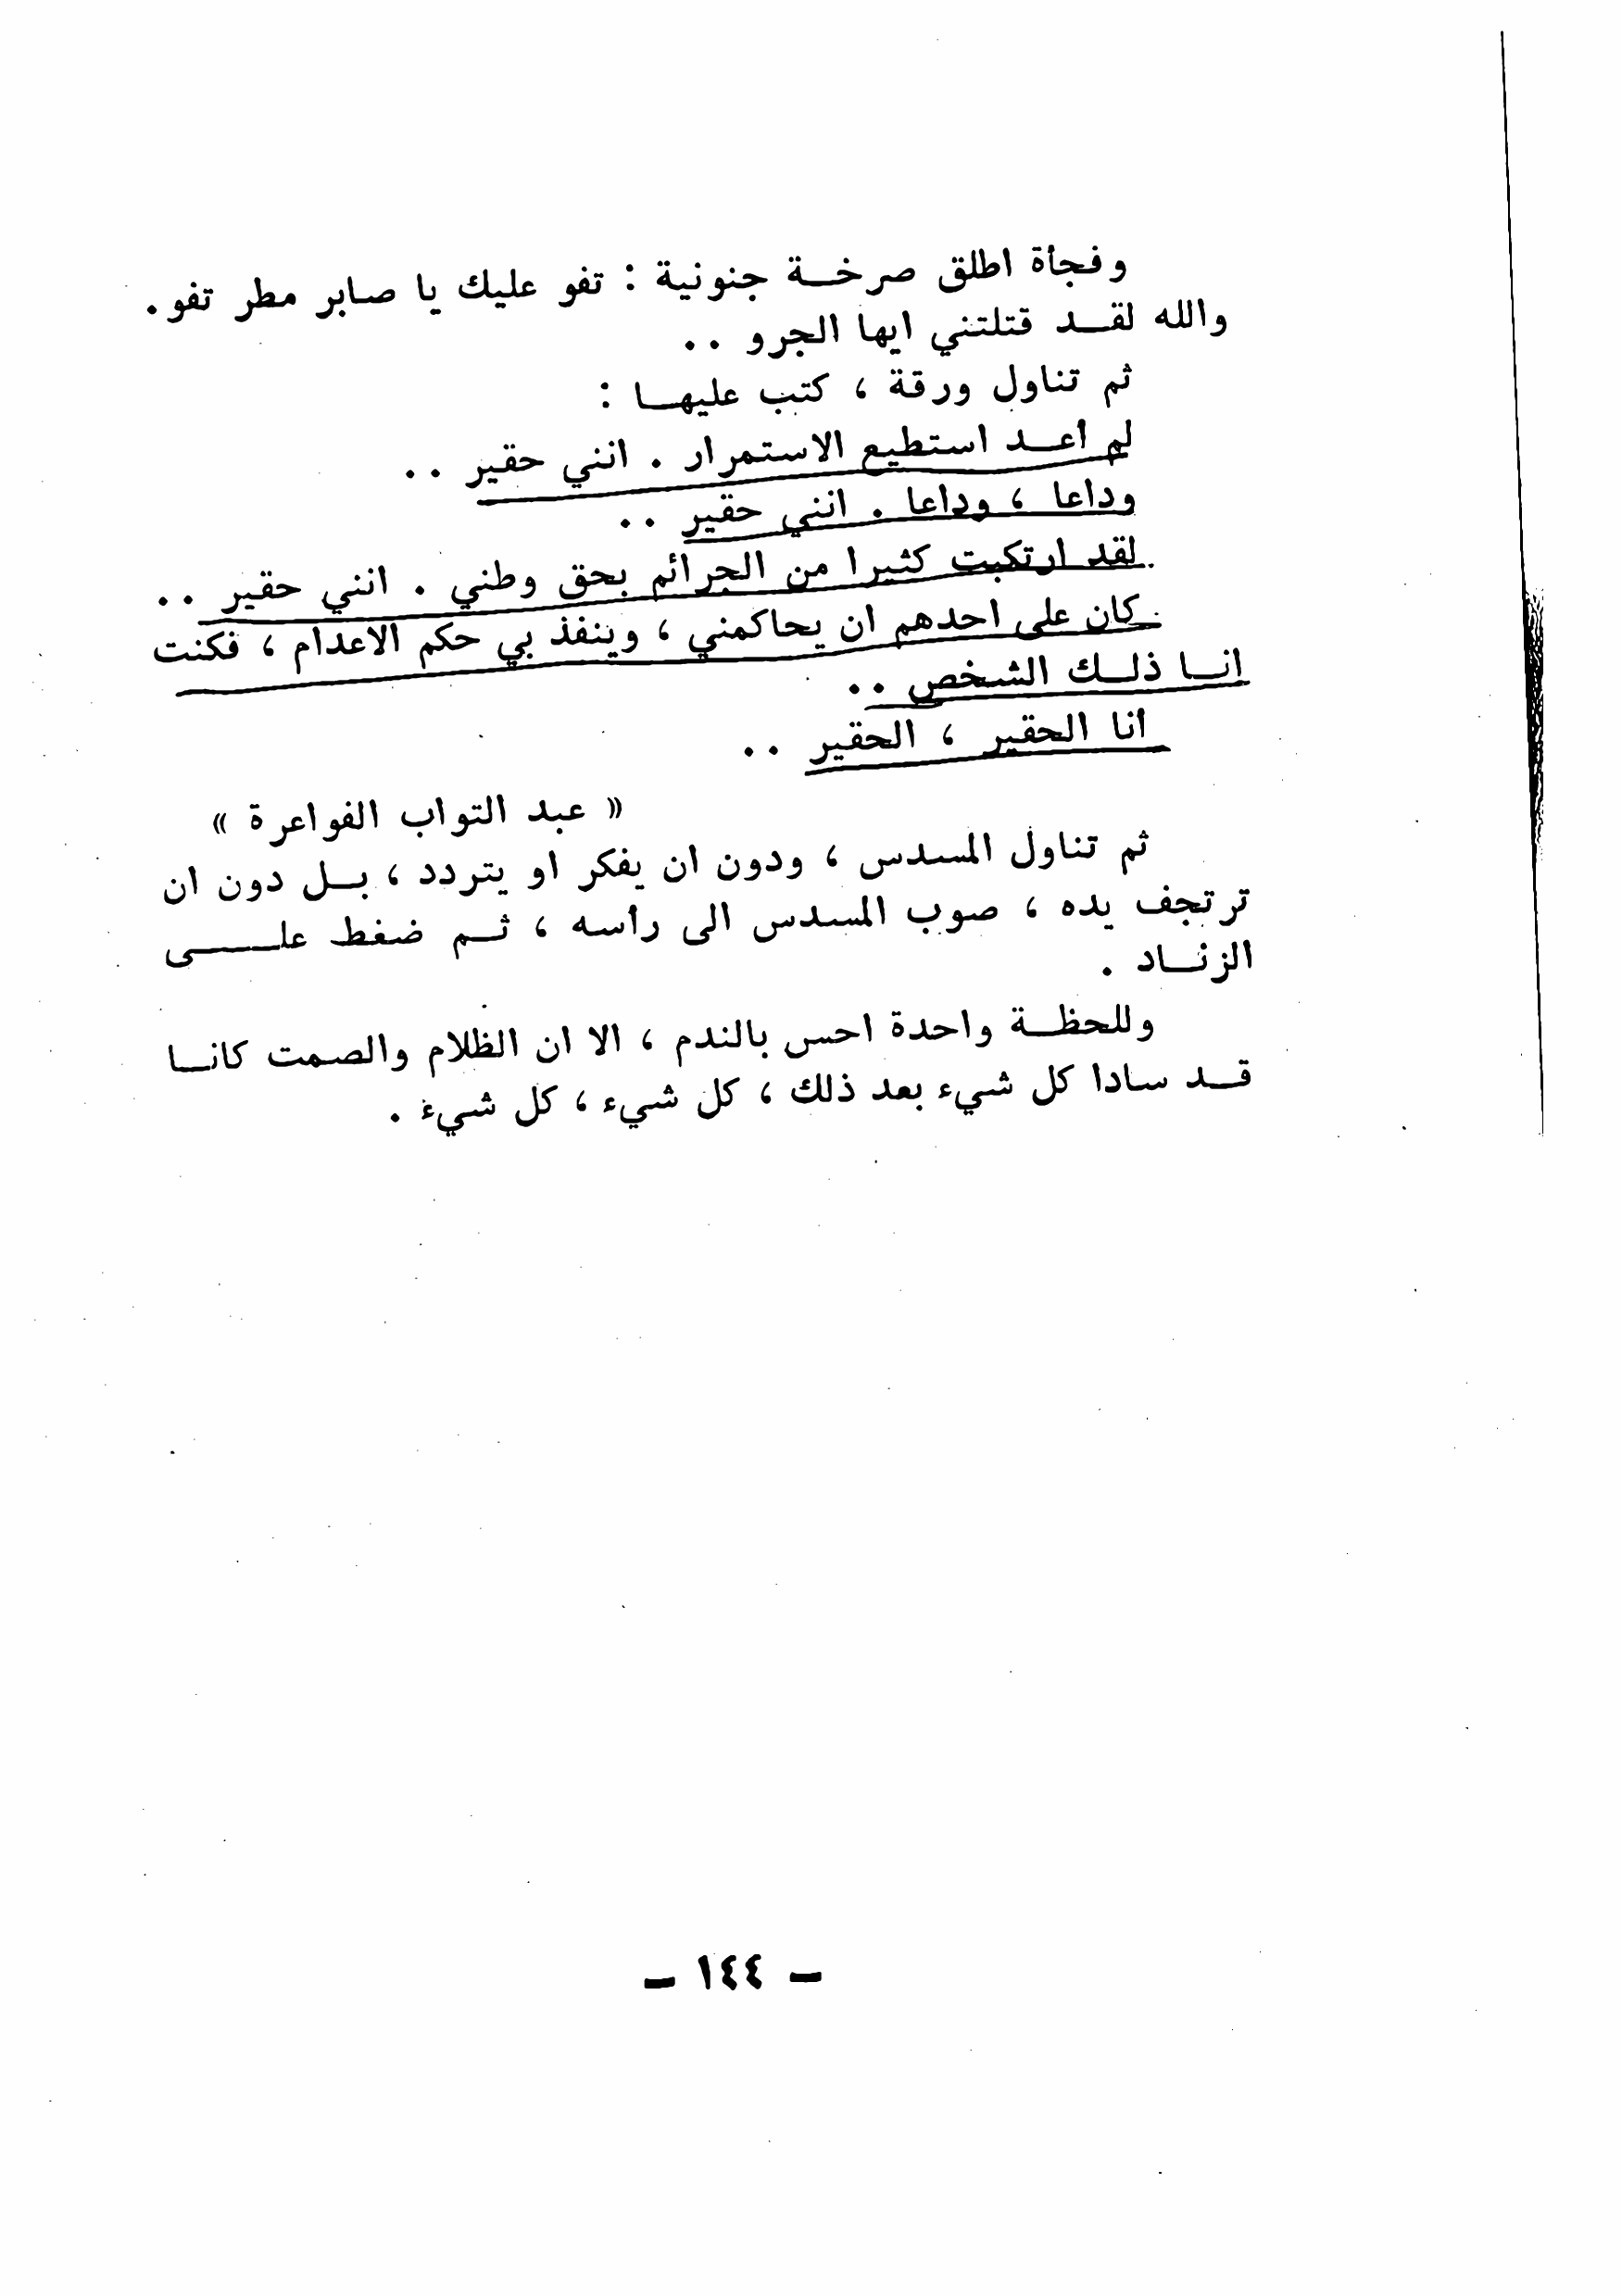 وفجأة اطلق صرخة جنونية : تفو عليك يا صابر مطر تفو .
والله لقد قتلتني ايها الجرو ..
ثم تناول ورقة ، كتب عليها :
لم أعد استطيع الاستمرار . انني حقير ..
وداعا ، وداعا . انني حقير ..
لقد ارتكبت كثيرا من الجرائم بحق وطني . انني حقير ..
كان على احدهم ان يحاكمني ، وينفذ بي حكم الاعدام ، فكنت
انا ذلك الشخص ..
أنا الحقير ، الحقير ..
« عبد التواب الفواعرة »
ثم تناول المسدس ، ودون ان يفكر او يتردد ، بل دون ان
ترتجف يده ، صوب المسدس الى رأسه ، ثم ضغط على
الزناد .
وللحظة واحدة احس بالندم ، الا ان الظلام والصمت كانا
قد سادا كل شيء بعد ذلك ، كل شيء ، كل شيء .
– ١٤٤ –